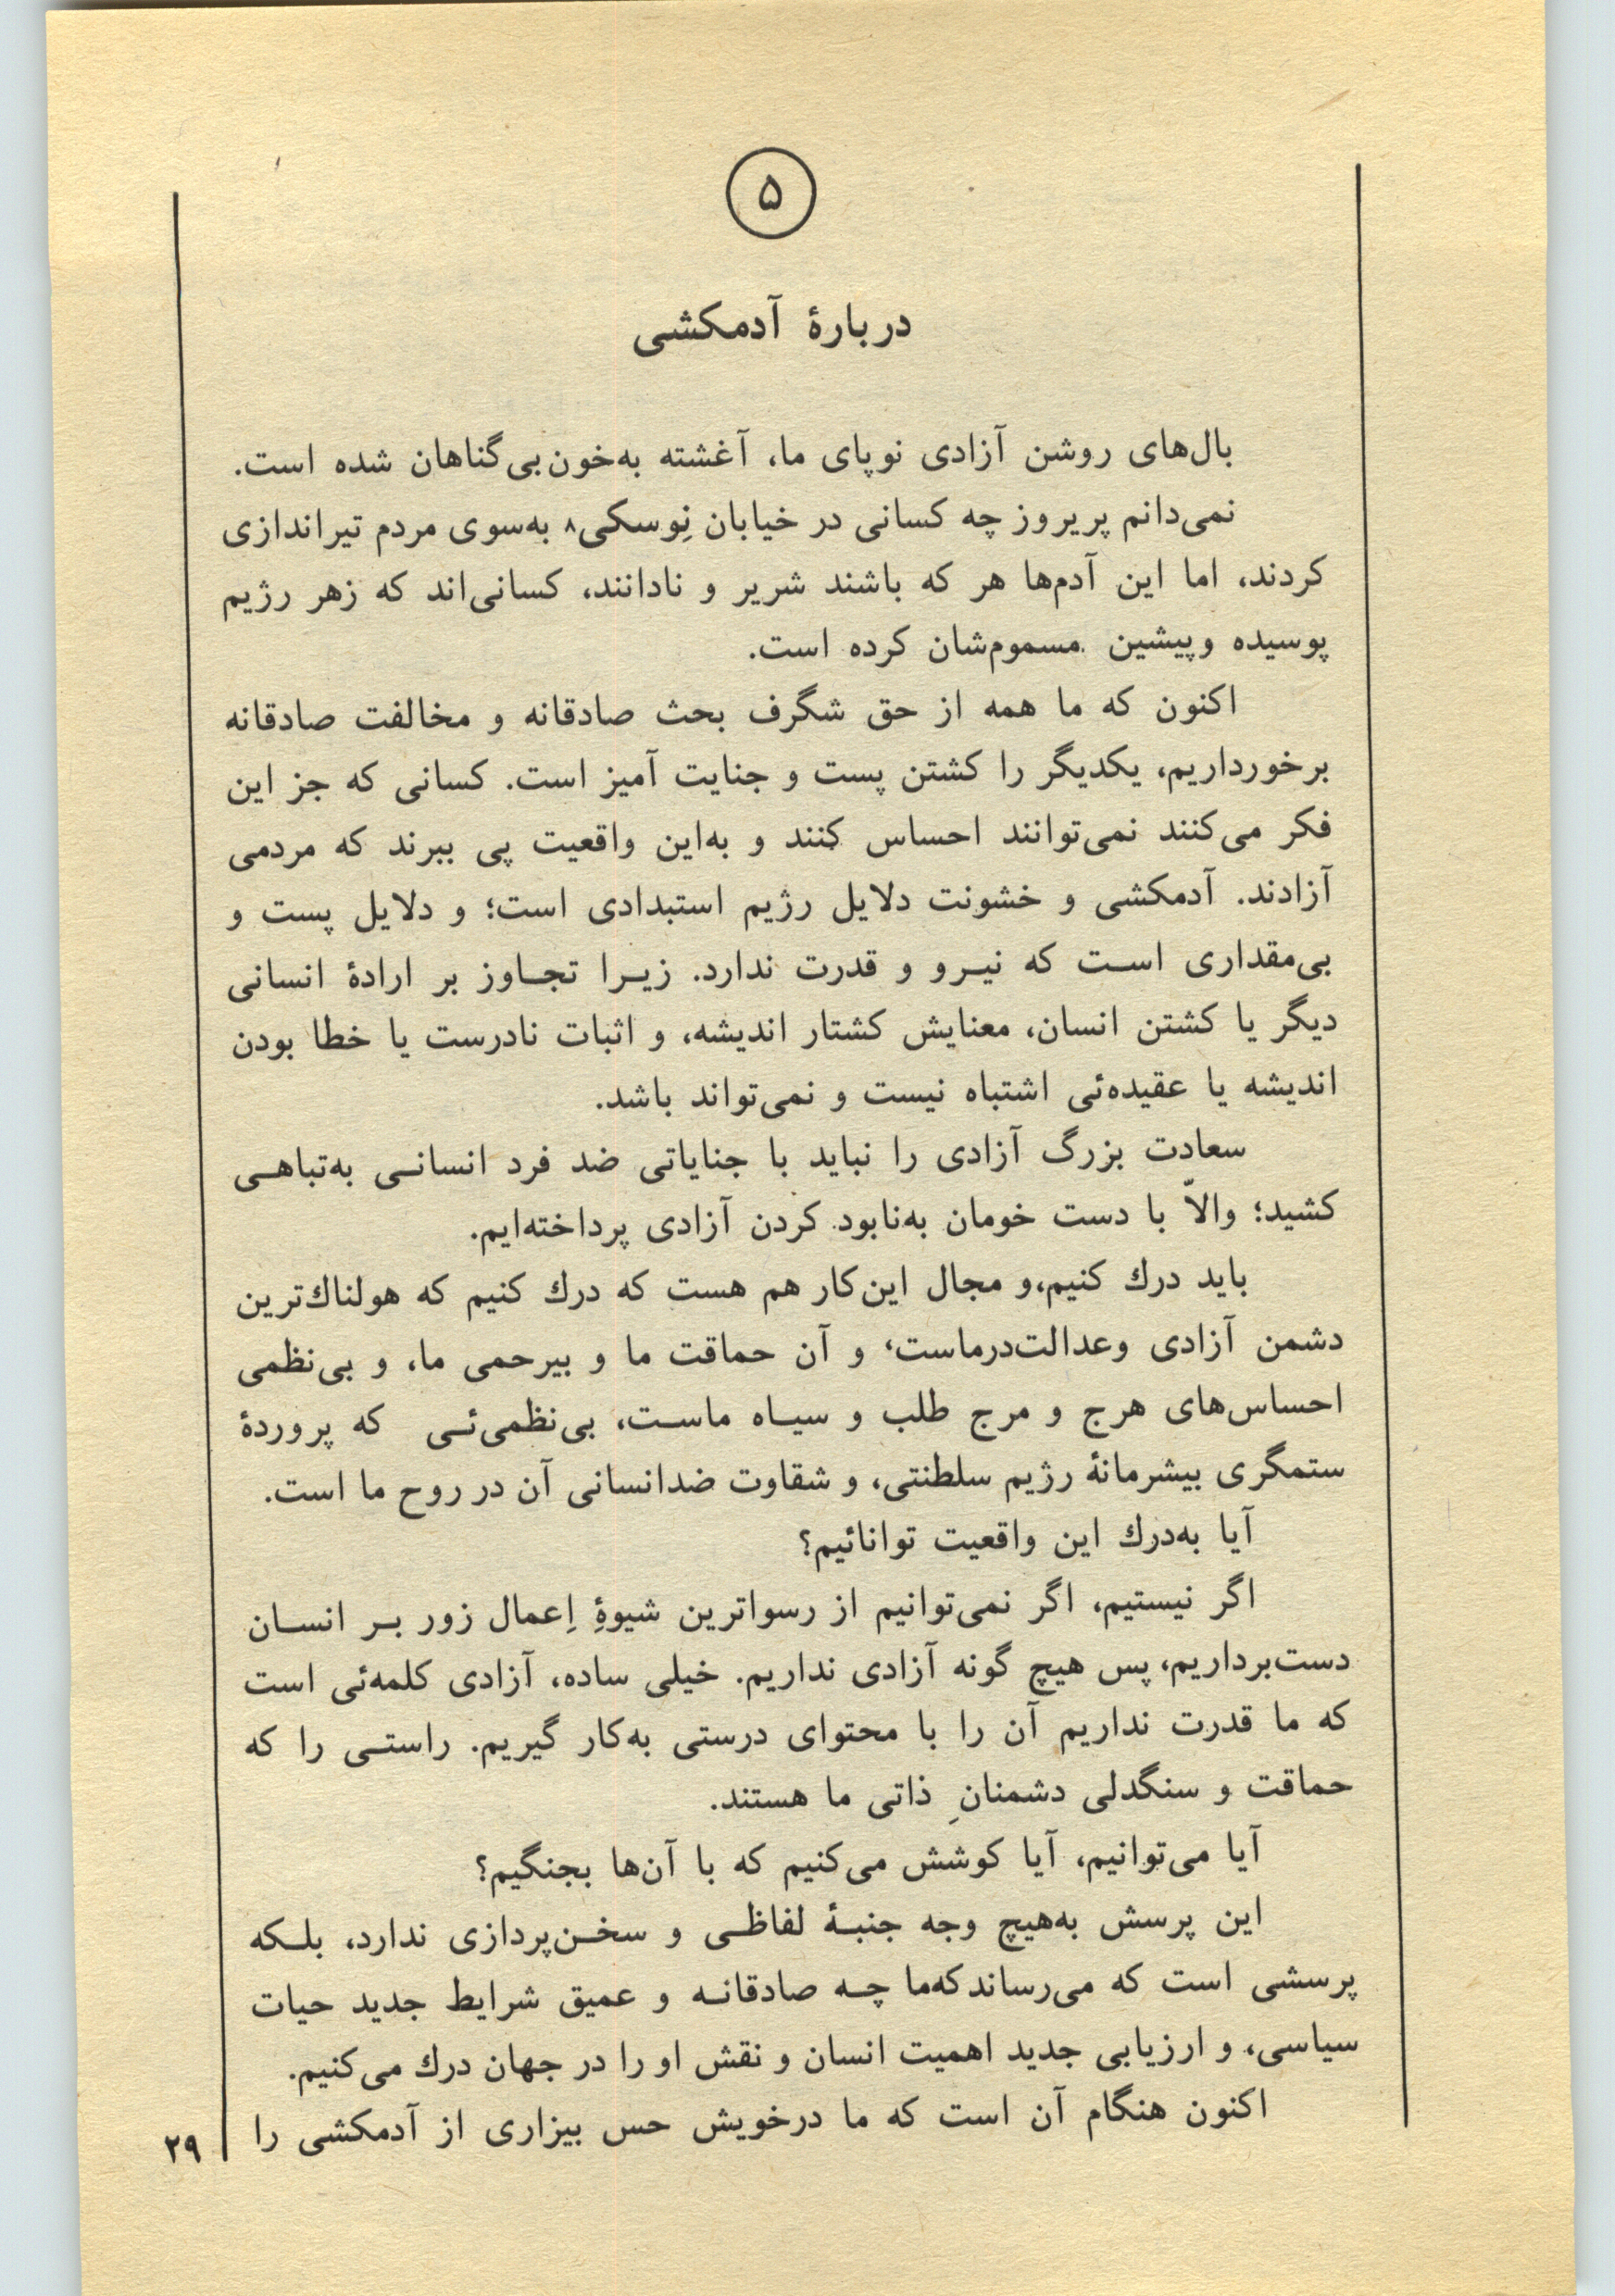 ۵
دربارهٔ آدمکشی
بال‌های روشن آزادی نوپای ما، آغشته به‌خون‌بی‌گناهان شده است.
نمی‌دانم پریروز چه کسانی در خیابان نِوسکی۸ به‌سوی مردم تیراندازی
کردند، اما این آدم‌ها هر که باشند شریر و نادانند، کسانی‌اند که زهر رژیم
پوسیده و پیشین مسموم‌شان کرده است.
اکنون که ما همه از حق شگرف بحث صادقانه و مخالفت صادقانه
برخورداریم، یکدیگر را کشتن پست و جنایت آمیز است. کسانی که جز این
فکر می‌کنند نمی‌توانند احساس کنند و به‌این واقعیت پی ببرند که مردمی
آزادند. آدمکشی و خشونت دلایل رژیم استبدادی است؛ و دلایل پست و
بی‌مقداری است که نیرو و قدرت ندارد. زیرا تجاوز بر ارادهٔ انسانی
دیگر یا کشتن انسان، معنایش کشتار اندیشه، و اثبات نادرست یا خطا بودن
اندیشه یا عقیده‌ئی اشتباه نیست و نمی‌تواند باشد.
سعادت بزرگ آزادی را نباید با جنایاتی ضد فرد انسانی به‌تباهی
کشید؛ والاّ با دست خومان به‌نابود کردن آزادی پرداخته‌ایم.
باید درك کنیم،و مجال این‌کار هم هست که درك کنیم که هولناك‌ترین
دشمن آزادی وعدالت‌درماست، و آن حماقت ما و بیرحمی ما، و بی‌نظمی
احساس‌های هرج و مرج طلب و سیاه ماست، بی‌نظمی‌ئی که پروردهٔ
ستمگری بیشرمانهٔ رژیم سلطنتی، و شقاوت ضدانسانی آن در روح ما است.
آیا به‌درك این واقعیت توانائیم؟
اگر نیستیم، اگر نمی‌توانیم از رسواترین شیوهٔ اِعمال زور بر انسان
دست‌برداریم، پس هیچ گونه آزادی نداریم. خیلی ساده، آزادی کلمه‌ئی است
که ما قدرت نداریم آن را با محتوای درستی به‌کار گیریم. راستی را که
حماقت و سنگدلی دشمنانِ ذاتی ما هستند.
آیا می‌توانیم، آیا کوشش می‌کنیم که با آن‌ها بجنگیم؟
این پرسش به‌هیچ وجه جنبهٔ لفاظی و سخن‌پردازی ندارد، بلکه
پرسشی است که می‌رساندکه‌ما چه صادقانه و عمیق شرایط جدید حیات
سیاسی، و ارزیابی جدید اهمیت انسان و نقش او را در جهان درك می‌کنیم.
اکنون هنگام آن است که ما درخویش حس بیزاری از آدمکشی را
۲۹